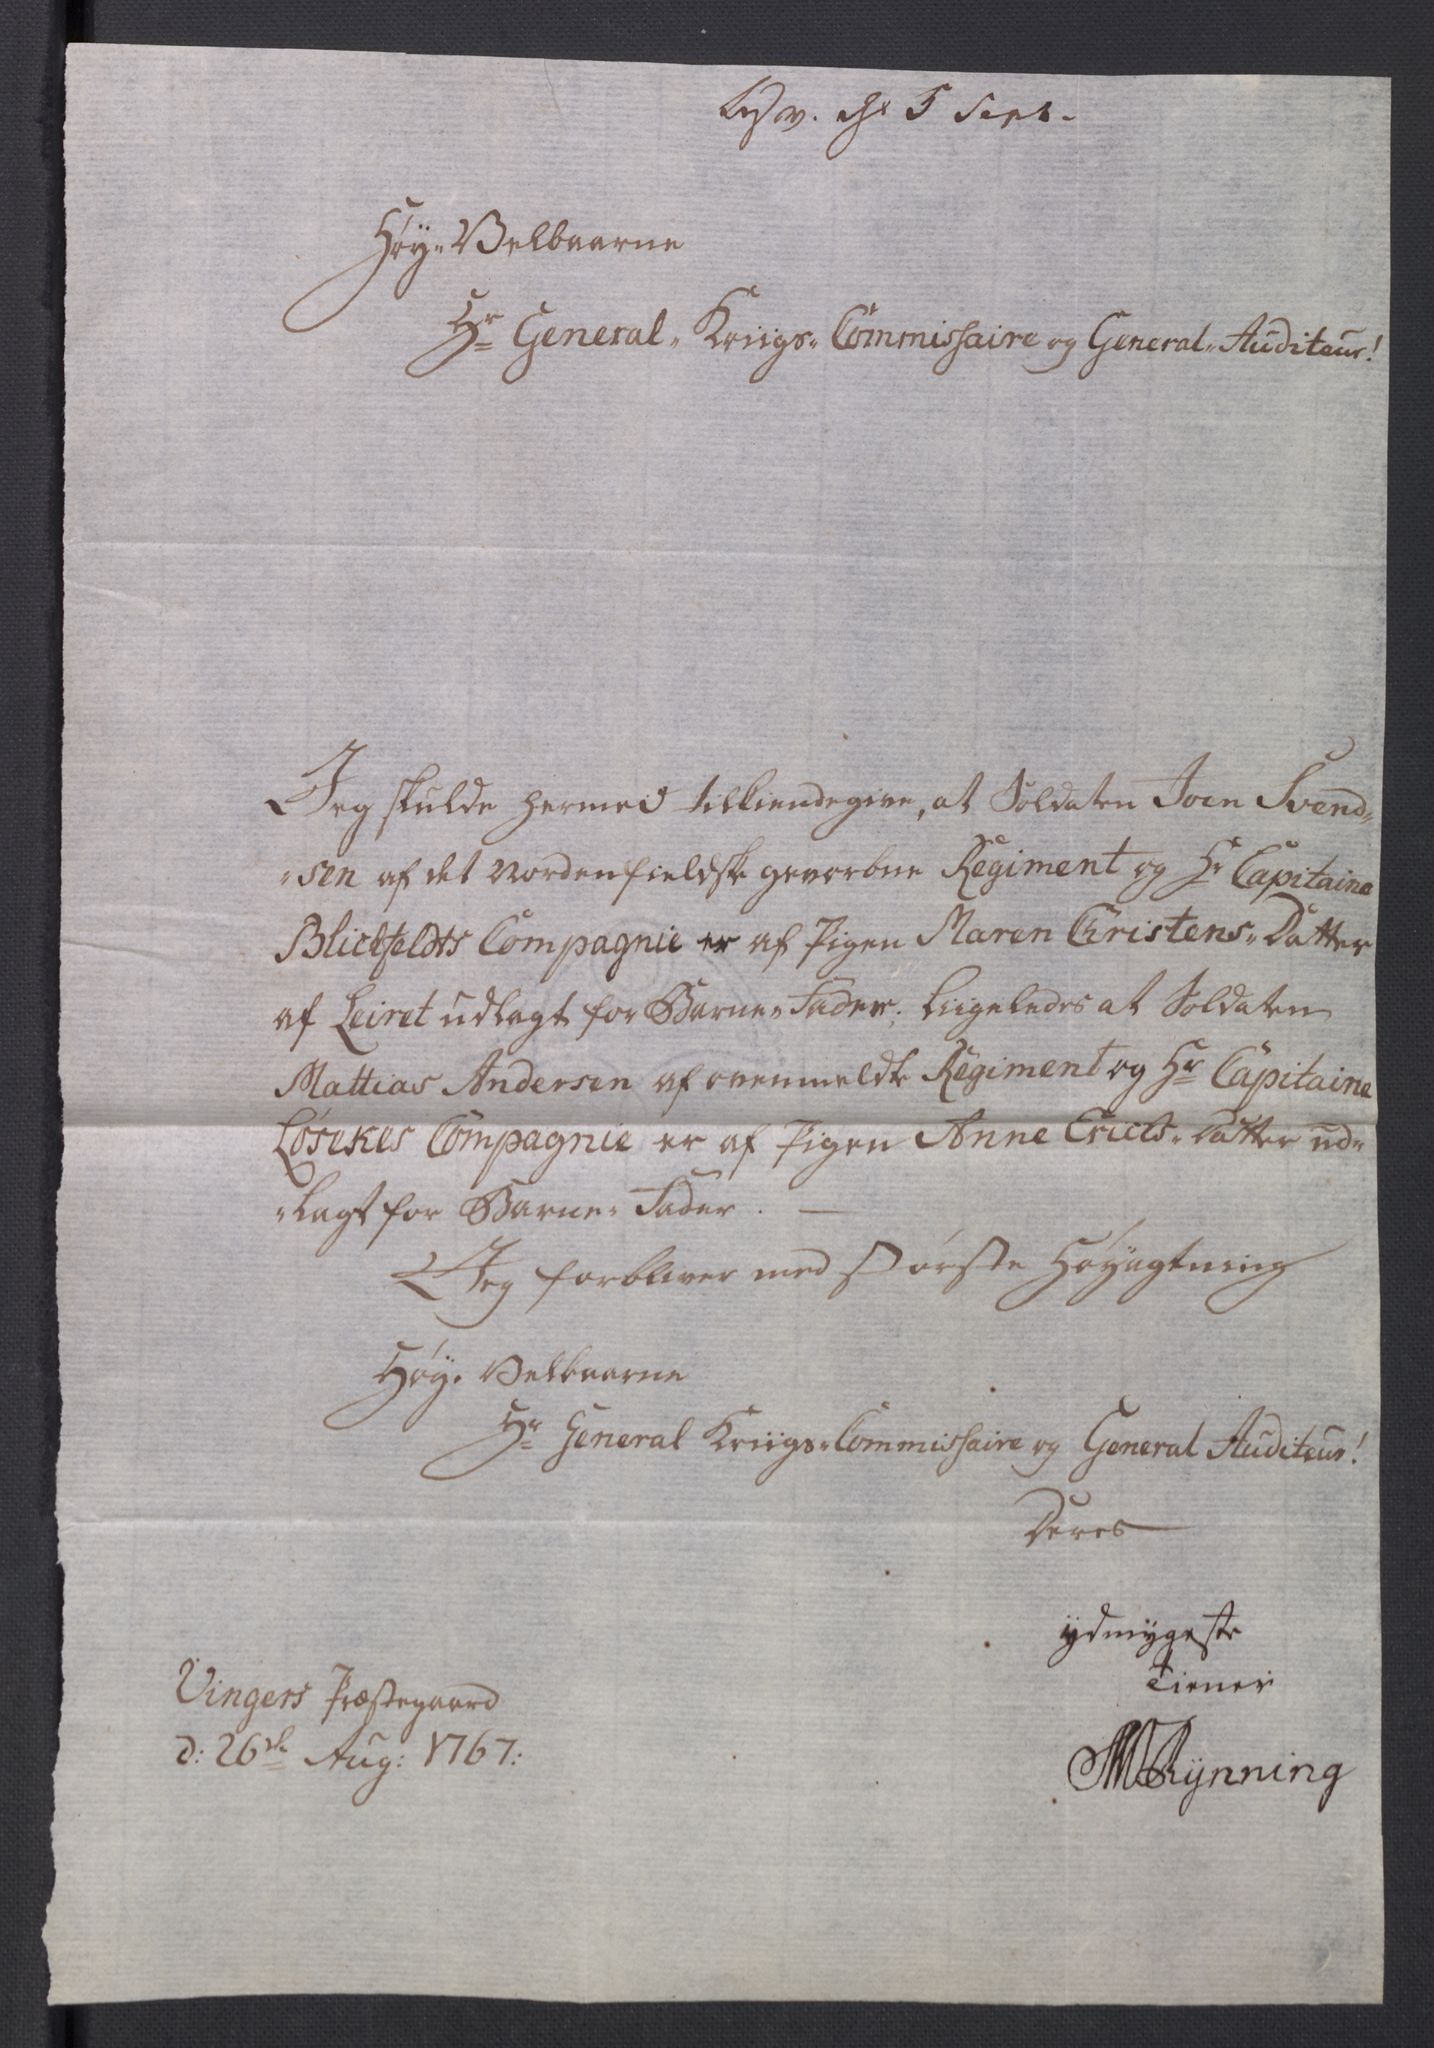 d. 5 Sept.
Høy-Velbaarne
Hr General-Kriigs-Commissaire og General-Auditeur!
Jeg skulde hermed tilkiendegive, at Soldaten Joen Svend-
-sen af det Nordenfieldske gevorbne Regiment og Hr Capitaine
Blickfeldts Compagnie er af Pigen Maren Christens-Datter
af Leiret udlagt for Barne-Fader; liigeledes at Soldaten
Mattias Andersen af ovenmeldte Regiment og Hr Capitaine
Lösekes Compagnie er af Pigen Anne Erichs-Datter ud-
-lagt for Barne-Fader. —
Jeg forbliver med største Høyagtning
Høy-Velbaarne
Hr General Kriigs-Commissaire og General Auditeur!
Deres
ydmygeste
Tiener
Rÿnning
Vingers Præstegaard
d: 26de Aug: 1767: